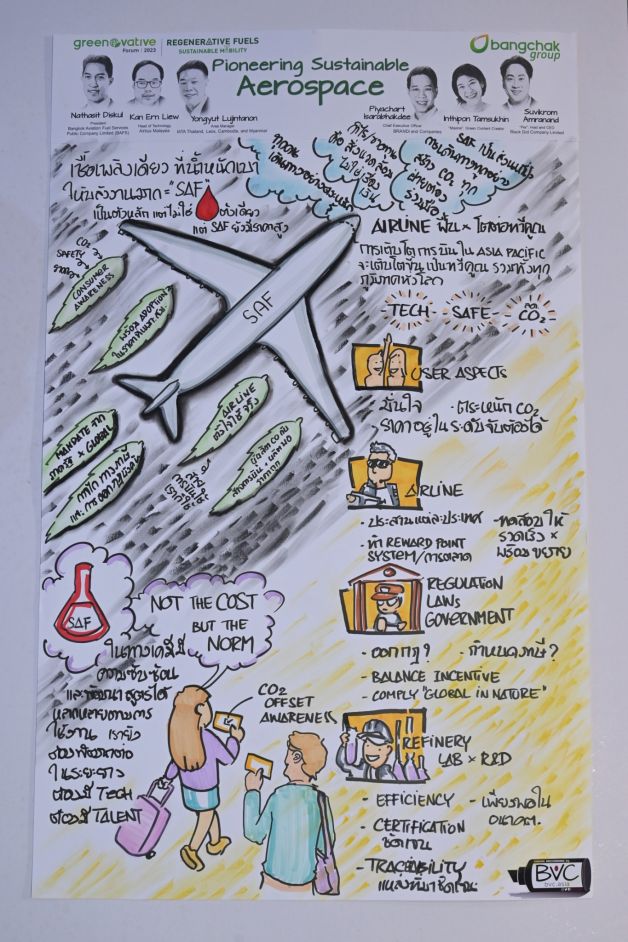 greenovative
Forum | 2023
REGENERATIVE FUELS
SUSTAINABLE MOBILITY
bangchak
group
Pioneering Sustainable
Aerospace
Nathasit Diskul
President
Bangkok Aviation Fuel Services
Public Company Limited (BAFS)
Kan Ern Liew
Head of Technology
Airbus Malaysia
Yongyut Lujintanon
Area Manager
IATA Thailand, Laos, Cambodia, and Myanmar
Piyachart
Isarabhakdee
Chief Executive Officer
BRANDi and Companies
Inthipon Tamsukhin
Suvikrom
Amranand
เชื้อเพลิงเดียว ที่น้ำหนักเบา
ให้พลังงานมาก = "SAF"
เป็นตัวหลัก แต่ไม่ใช่ ตัวเดียว
แต่ SAF ยังมีราคาสูง
AIRLINE ฟื้น × โตต่อทวีคูณ
การเติบโตการบินใน ASIA PACIFIC
จะเติบโตขึ้นเป็นทวีคูณ รวมทั้งทุก
ภูมิภาคทั่วโลก
-TECH-
SAFE-
CO2
CO2
SAFETY
ราคา
CONSUMER
AWARENESS
SAF
AIRLINE
MANDATE จาก
ภาครัฐ × GLOBAL
สาย
การบินใช้
เราก็ใช้
USER ASPECTS
มั่นใจ
· ตระหนัก CO2
ราคาอยู่ในระดับจับต้องได้
AIRLINE
· ประสานแต่ละประเทศ
· ทำ REWARD POINT
SYSTEM/การตลาด
- ทดสอบให้
รวดเร็ว ×
พร้อมขยาย
REGULATION
LAWS
GOVERNMENT
- ออกกฎ?
- กำหนดภาษี?
- BALANCE INCENTIVE
- COMPLY "GLOBAL IN NATURE"
REFINERY
LAB × R&D
- EFFICIENCY
- เพียงพอใน
อนาคต.
- CERTIFICATION
ชัดเจน
- TRACEABILITY
แหล่งที่มาชัดเจน
SAF
NOT THE COST
BUT THE
NORM
ในทางเคมีมี
ความซับซ้อน
และพัฒนาสูตรได้
หลากหลายตามการ
ใช้งาน เราจึง
ในระยะยาว
ต้องมี TECH
ต้องมี TALENT
CO2
OFFSET
AWARENESS
BVC
bvc.asia